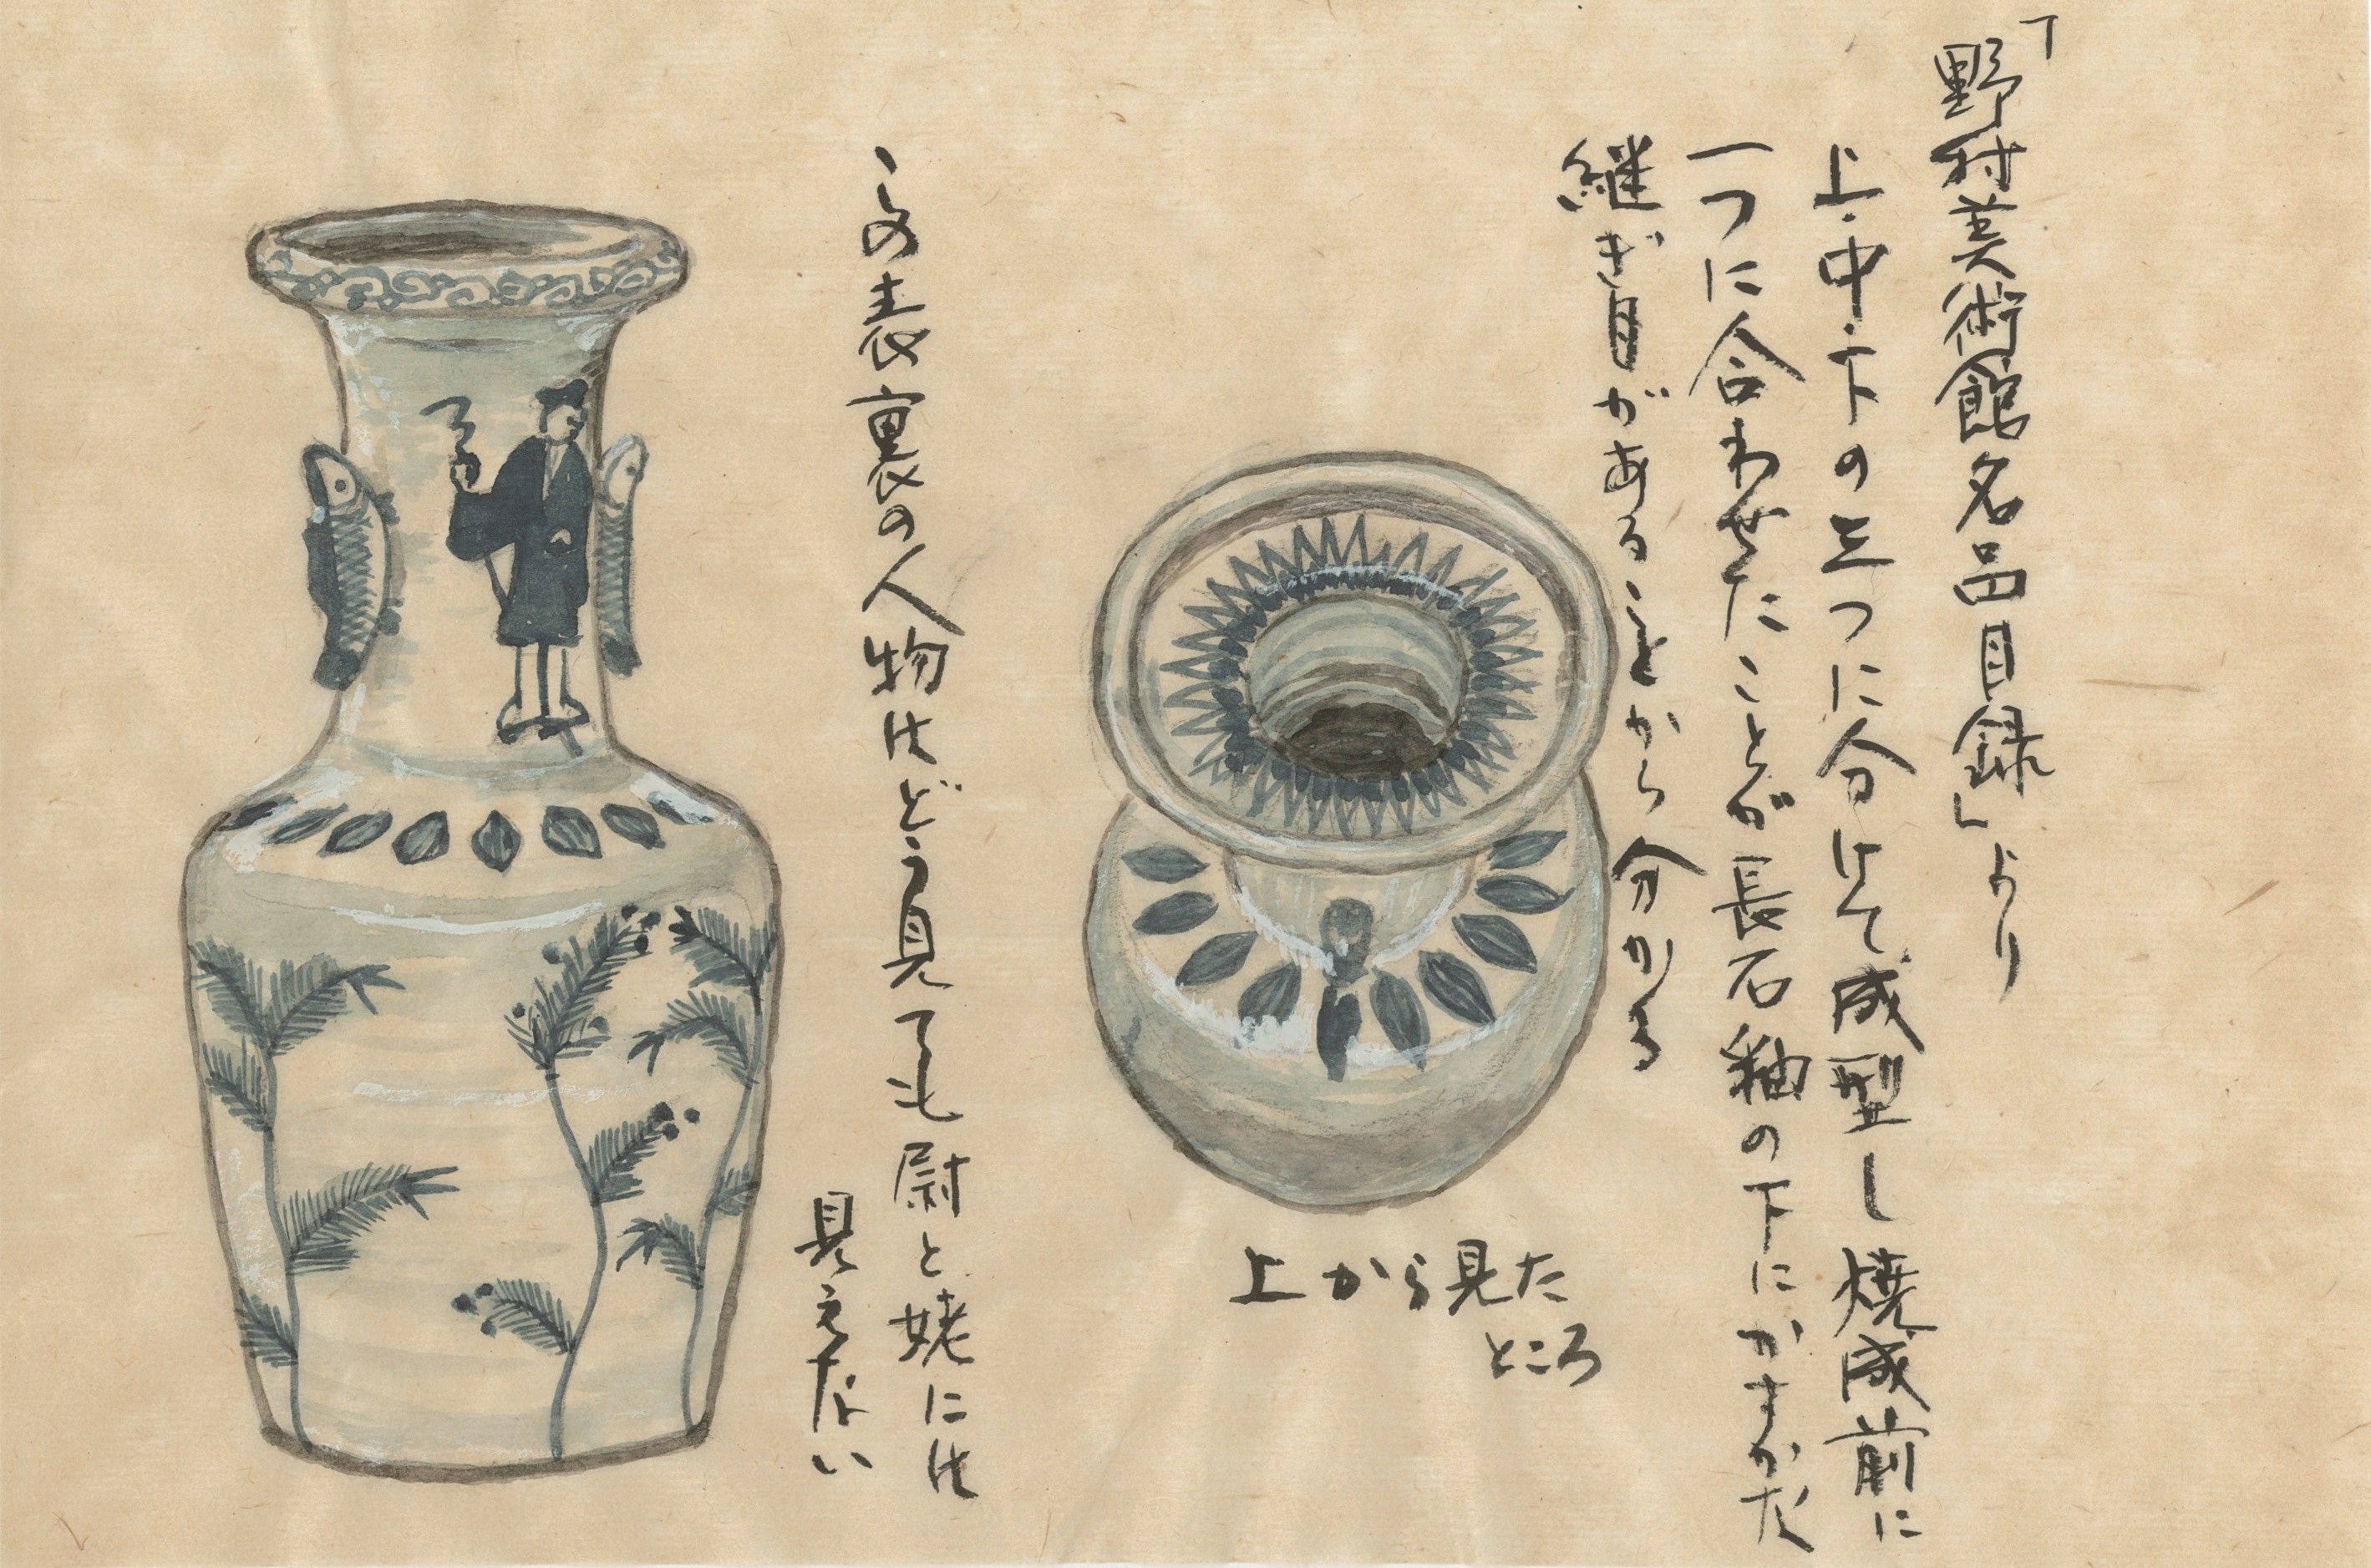 「野村美術館名品目録」より
上・中・下の三つに分けて成型し焼成前に
一つに合わせたことが長石釉の下にかすかな
継ぎ目があることから分かる
上から見た
ところ
この表裏の人物はどう見ても尉と姥には
見えない